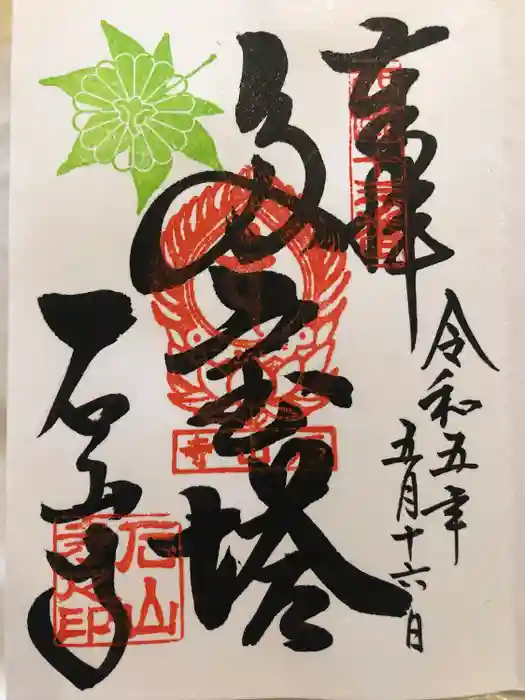 奉拝
令和五年
五月十六日
多宝塔
石山寺
石山寺
石山寺印